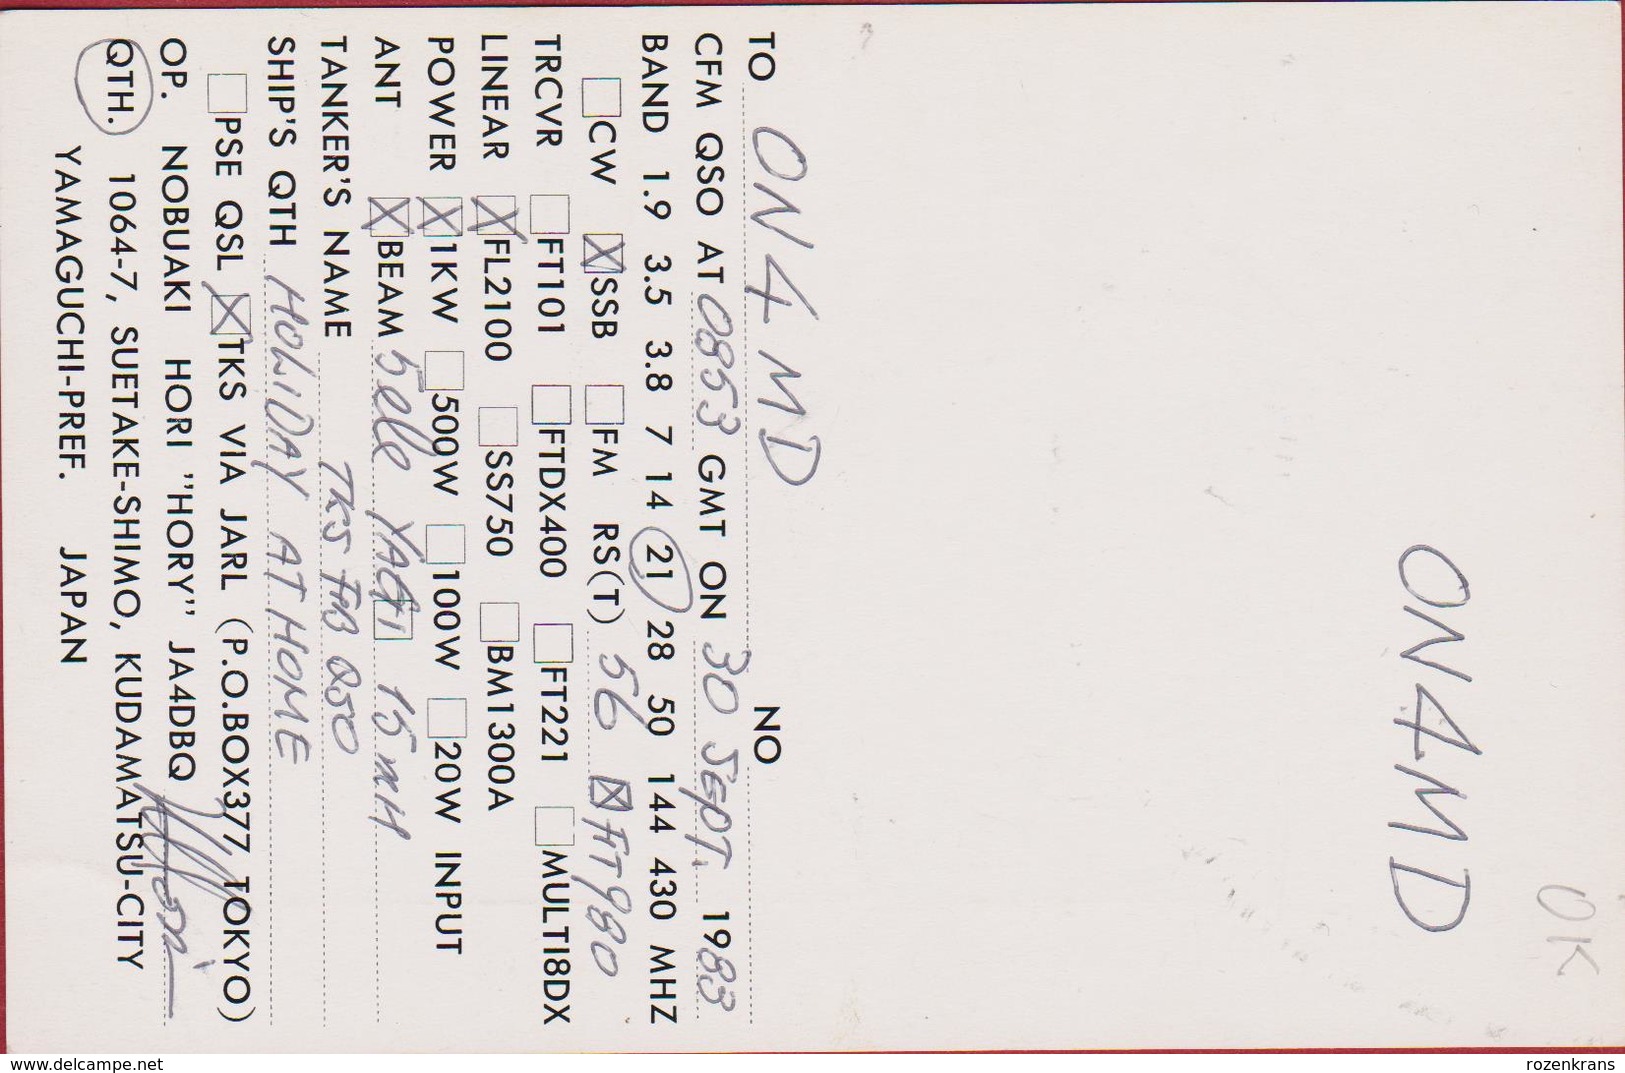 OK
ON4MD
TO ON4MD NO
CFM QSO AT 0853 GMT ON 30 SEPT. 1983
BAND 1.9 3.5 3.8 7 14 21 28 50 144 430 MHZ
☐CW ☒SSB ☐FM RS(T) 56 ☒FT980
TRCVR ☐FT101 ☐FTDX400 ☐FT221 ☐MULTI8DX
LINEAR ☒FL2100 ☐SS750 ☐BM1300A
POWER ☒1KW ☐500W ☐100W ☐20W INPUT
ANT ☒BEAM 5ele YAGI ☐ 15mH
TANKER'S NAME TKS FB QSO
SHIP'S QTH HOLIDAY AT HOME
☐PSE QSL ☒TKS VIA JARL (P.O.BOX377, TOKYO)
OP. NOBUAKI HORI "HORY" JA4DBQ
QTH. 1064-7, SUETAKE-SHIMO, KUDAMATSU-CITY
YAMAGUCHI-PREF. JAPAN
www.delcampe.net
rozenkrans